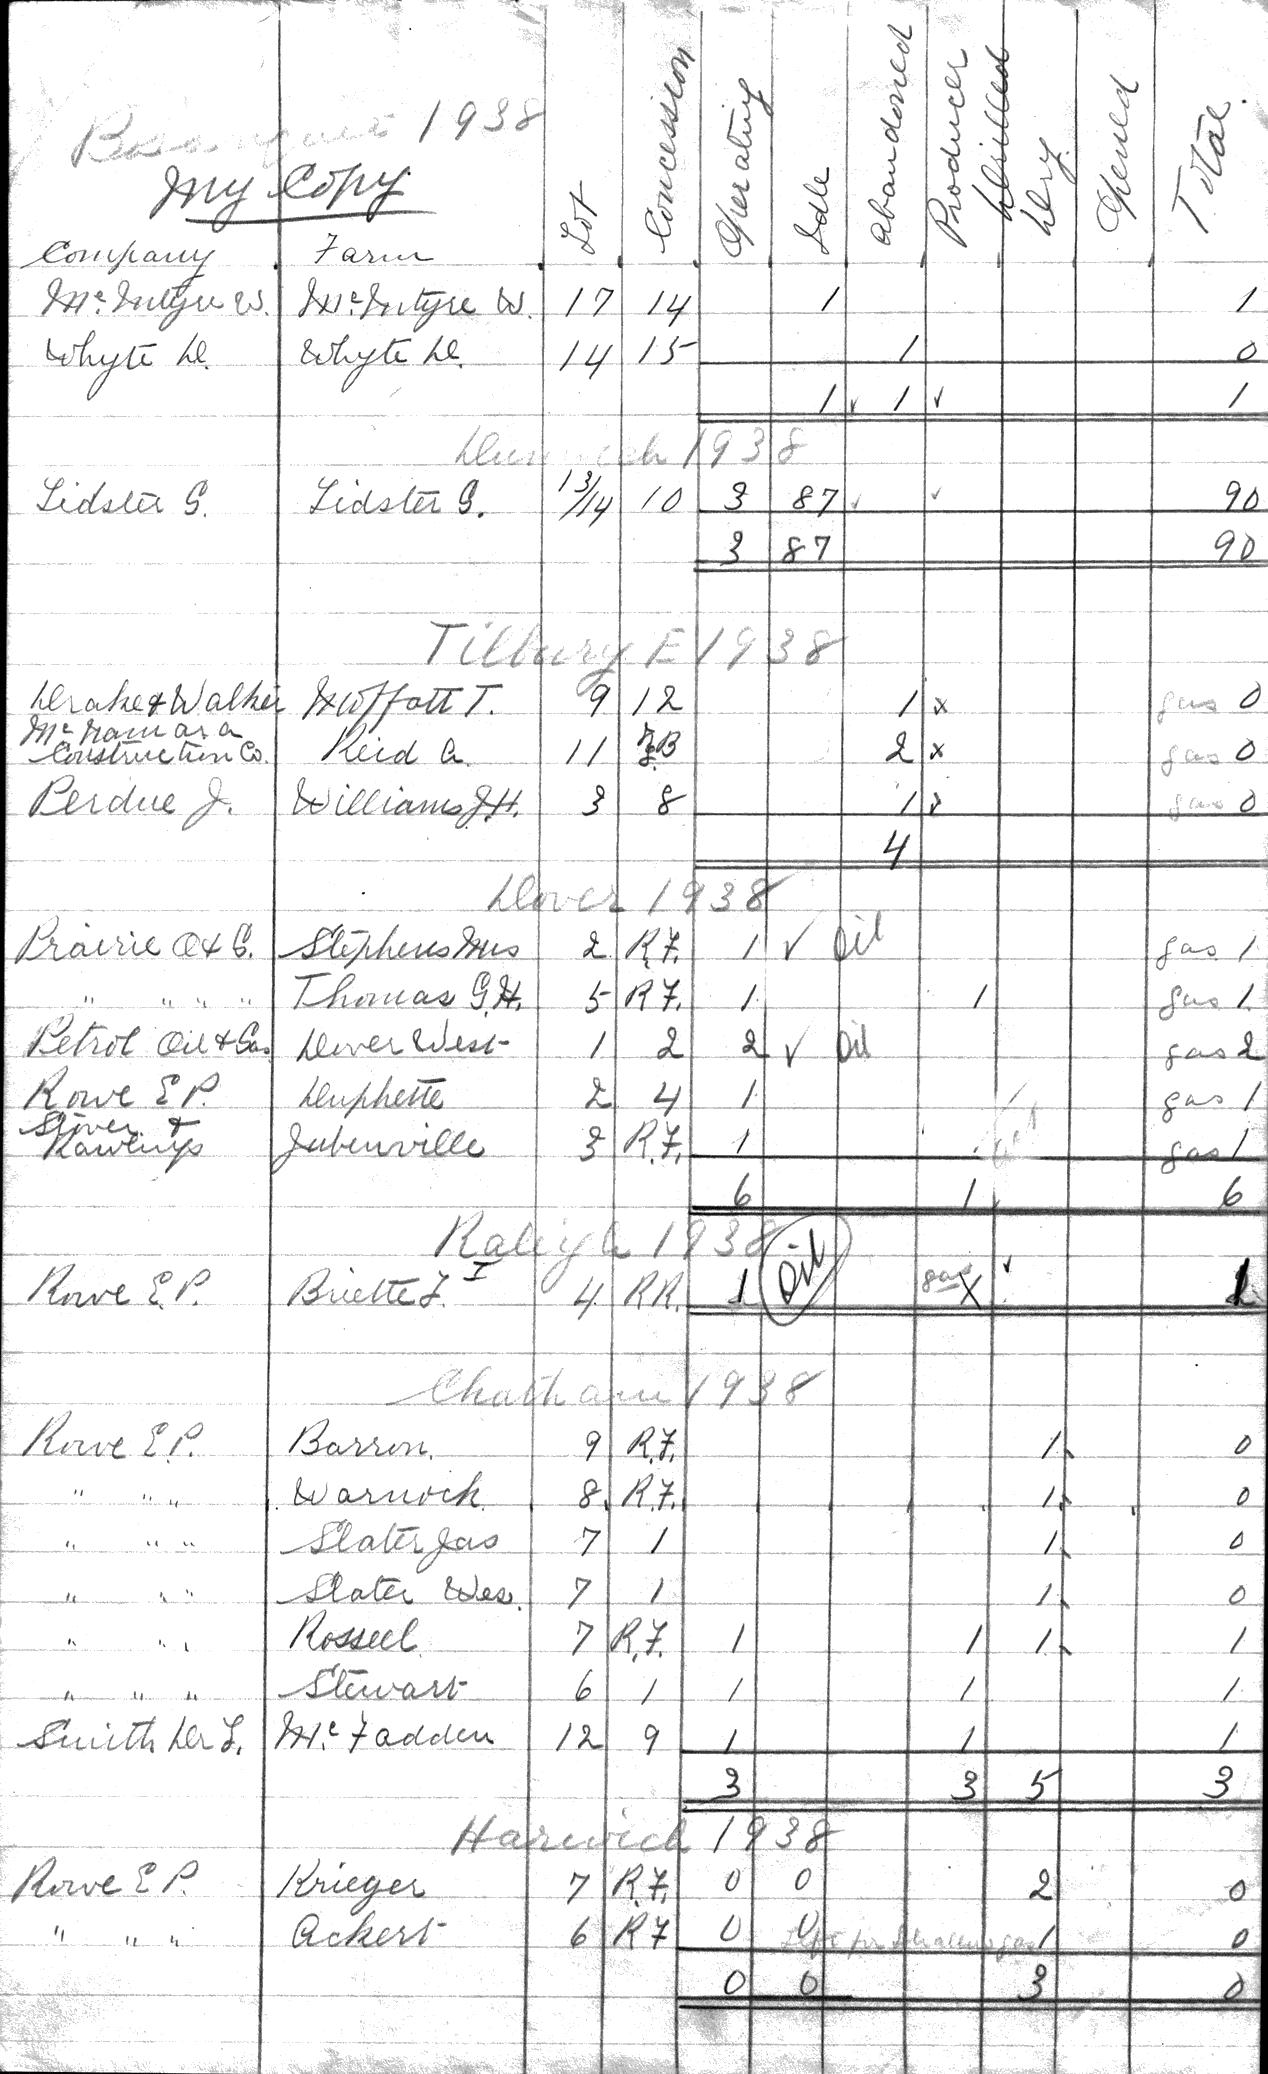 Bosanquet 1938
My Copy
Company Farm Lot Concession Operating Idle Abandoned Producer Drilled Dry Opened Total
Mc.Intyre W. Mc.Intyre W. 17 14 1 1
Whyte D. Whyte D. 14 15 1 0
1 ✓ 1 ✓ 1
Dunwich 1938
Lidster G. Lidster G. 13/14 10 3 87 ✓ ✓ 90
3 87 90
Tilbury E 1938
Drake & Walker Moffatt T. 9 12 1 x gas 0
McNamara
Construction Co. Reid A. 11 2 x gas 0
Perdue J. Williams J.H. 3 8 1 x gas 0
4
Dover 1938
Prairie O & G. Stephens Mrs 2 R.F. 1 ✓ Oil gas 1
" " " " Thomas G.H. 5 R F. 1 1 gas 1
Petrol Oil & Gas Dover West 1 2 2 ✓ Oil gas 2
Rowe E P. Duphette 2 4 1 gas 1
Stover &
Rawlings Jubenville 3 R.F. 1 gas 1
6 1 6
Raleigh 1938
Rowe E.P. Briette F. I 4 R R. 1 Oil gas X ✓ 1
Chatham 1938
Rowe E.P. Barron. 9 R.F. 1 0
" " " Warnock 8 R.F. 1 0
" " " Slater Jas 7 1 1 0
" " " Slater Wes. 7 1 1 0
" " " Rosseel 7 R.F. 1 1 1 1
" " " Stewart 6 1 1 1 1
Smith Dr L. Mc.Fadden 12 9 1 1 1
3 3 5 3
Harwich 1938
Rowe E P. Krieger 7 R.F. 0 0 2 0
" " " Ackert 6 R F 0 0 Left for gas 1 0
0 0 3 0